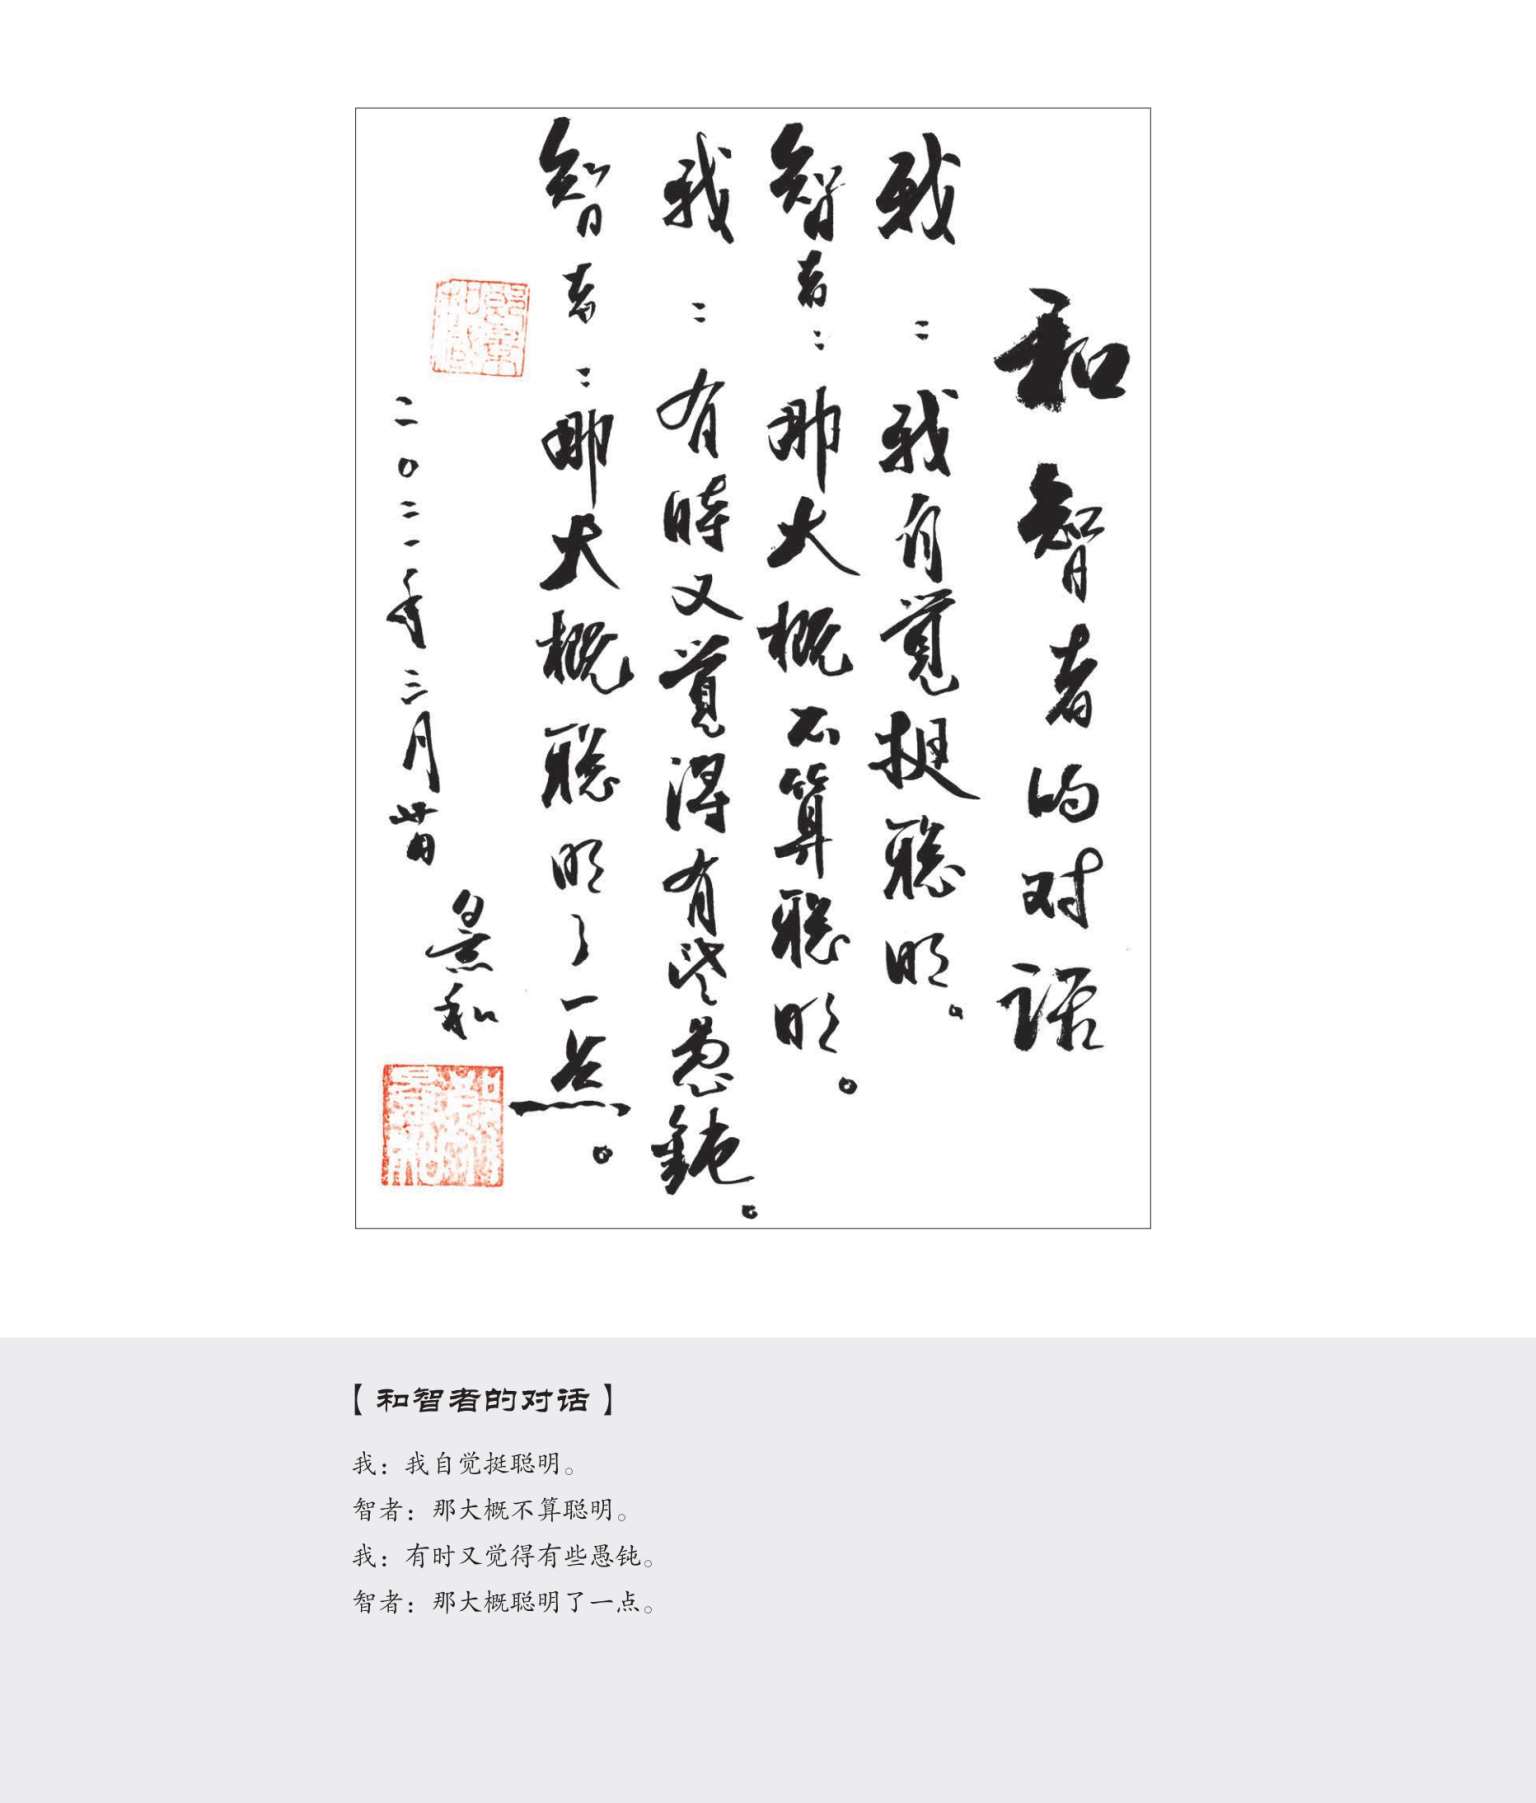 和智者的对话
我：我自覺挺聪明。
智者：那大概不算聪明。
我：有時又覺得有些愚鈍。
智者：那大概聪明了一点。
二〇二一年三月廿一日
景和
【和智者的对话】
我：我自觉挺聪明。
智者：那大概不算聪明。
我：有时又觉得有些愚钝。
智者：那大概聪明了一点。